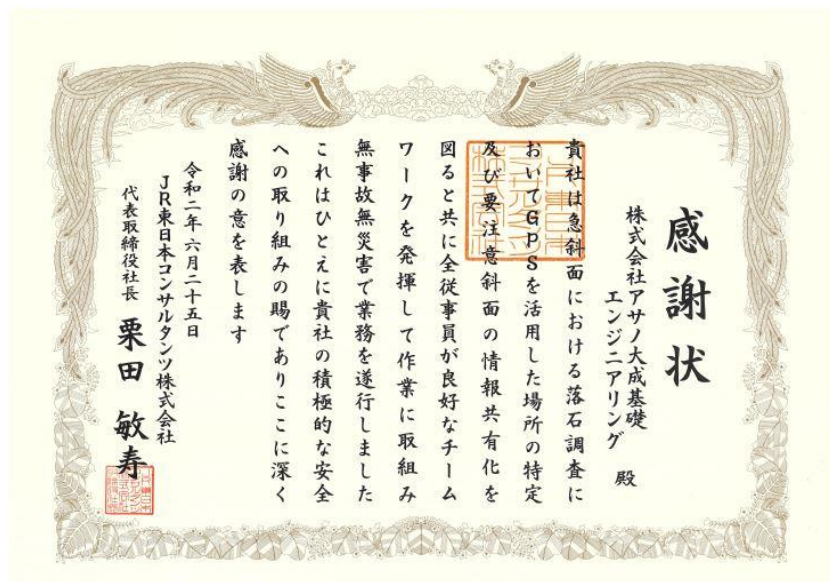 感謝状
株式会社アサノ大成基礎
エンジニアリング 殿
貴社は急斜面における落石調査に
おいてGPSを活用した場所の特定
及び要注意斜面の情報共有化を
図ると共に全従事員が良好なチーム
ワークを発揮して作業に取組み
無事故無災害で業務を遂行しました
これはひとえに貴社の積極的な安全
への取り組みの賜でありここに深く
感謝の意を表します
令和二年六月二十五日
JR東日本コンサルタンツ株式会社
代表取締役社長 栗田 敏寿